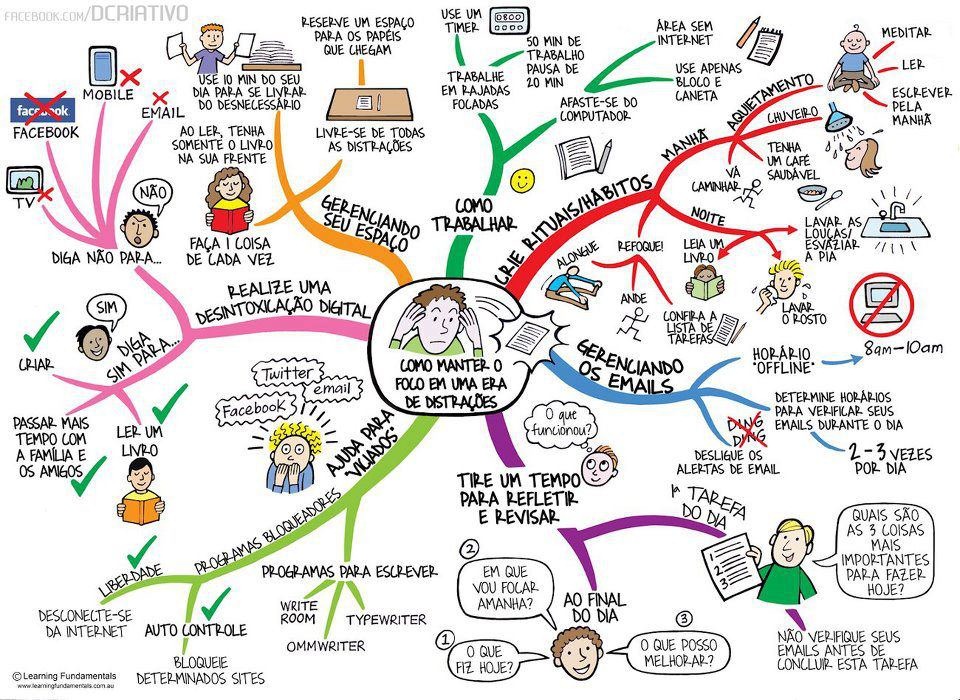 FACEBOOK.COM/DCRIATIVO
COMO MANTER O
FOCO EM UMA ERA
DE DISTRAÇÕES
GERENCIANDO
SEU ESPAÇO
RESERVE UM ESPAÇO
PARA OS PAPÉIS
QUE CHEGAM
USE 10 MIN DO SEU
DIA PARA SE LIVRAR
DO DESNECESSÁRIO
LIVRE-SE DE TODAS
AS DISTRAÇÕES
AO LER, TENHA
SOMENTE O LIVRO
NA SUA FRENTE
FAÇA 1 COISA
DE CADA VEZ
COMO
TRABALHAR
USE UM
TIMER
TRABALHE
EM RAJADAS
FOCADAS
50 MIN DE
TRABALHO
PAUSA DE
20 MIN
AFASTE-SE DO
COMPUTADOR
ÁREA SEM
INTERNET
USE APENAS
BLOCO E
CANETA
CRIE RITUAIS/HÁBITOS
MANHÃ
AQUIETAMENTO
MEDITAR
LER
ESCREVER
PELA
MANHÃ
CHUVEIRO
TENHA
UM CAFÉ
SAUDÁVEL
VÁ
CAMINHAR
NOITE
LAVAR AS
LOUÇAS/
ESVAZIAR
A PIA
LAVAR
O ROSTO
LEIA UM
LIVRO
REFOQUE!
ALONGUE
ANDE
CONFIRA A
LISTA DE
TAREFAS
GERENCIANDO
OS EMAILS
HORÁRIO
"OFFLINE"
8am-10am
DETERMINE HORÁRIOS
PARA VERIFICAR SEUS
EMAILS DURANTE O DIA
2-3 VEZES
POR DIA
DING
DING
DESLIGUE OS
ALERTAS DE EMAIL
TIRE UM TEMPO
PARA REFLETIR
E REVISAR
O que
funcionou?
1ª TAREFA
DO DIA
1
2
3
QUAIS SÃO
AS 3 COISAS
MAIS
IMPORTANTES
PARA FAZER
HOJE?
NÃO VERIFIQUE SEUS
EMAILS ANTES DE
CONCLUIR ESTA TAREFA
AO FINAL
DO DIA
1
O QUE
FIZ HOJE?
2
EM QUE
VOU FOCAR
AMANHA?
3
O QUE POSSO
MELHORAR?
AJUDA PARA
"VICIADOS"
Twitter
email
Facebook
PROGRAMAS BLOQUEADORES
LIBERDADE
DESCONECTE-SE
DA INTERNET
AUTO CONTROLE
BLOQUEIE
DETERMINADOS SITES
PROGRAMAS PARA ESCREVER
WRITE
ROOM
OMMWRITER
TYPEWRITER
REALIZE UMA
DESINTOXICAÇÃO DIGITAL
DIGA NÃO PARA...
NÃO
TV
facebook
FACEBOOK
MOBILE
EMAIL
DIGA
SIM PARA...
SIM
CRIAR
PASSAR MAIS
TEMPO COM
A FAMÍLIA E
OS AMIGOS
LER UM
LIVRO
© Learning Fundamentals
www.learningfundamentals.com.au